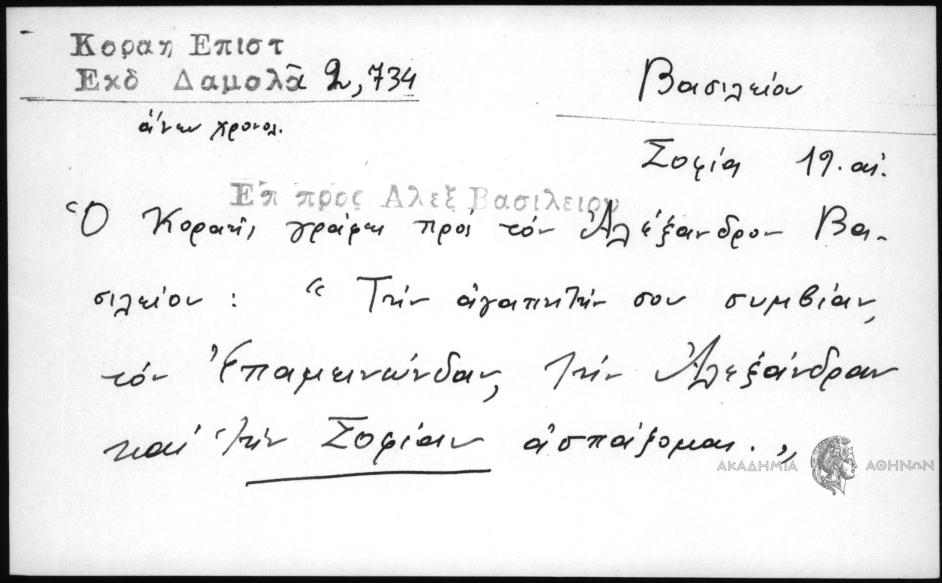 Κοραη Επιστ
Εκδ Δαμαλᾶ 2,734
ἄνευ χρονολ.
Βασιλείου
Σοφία 19. αἰ.
Επ προς Αλεξ Βασιλειου
Ὁ Κοραῆς γράφει πρὸς τὸν Ἀλέξανδρον Βα-
σιλείου : "Τὴν ἀγαπητήν σου συμβίαν,
τὸν Ἐπαμεινώνδαν, τὴν Ἀλεξάνδραν
καὶ τὴν Σοφίαν ἀσπάζομαι."
ΑΚΑΔΗΜΙΑ ΑΘΗΝΩΝ